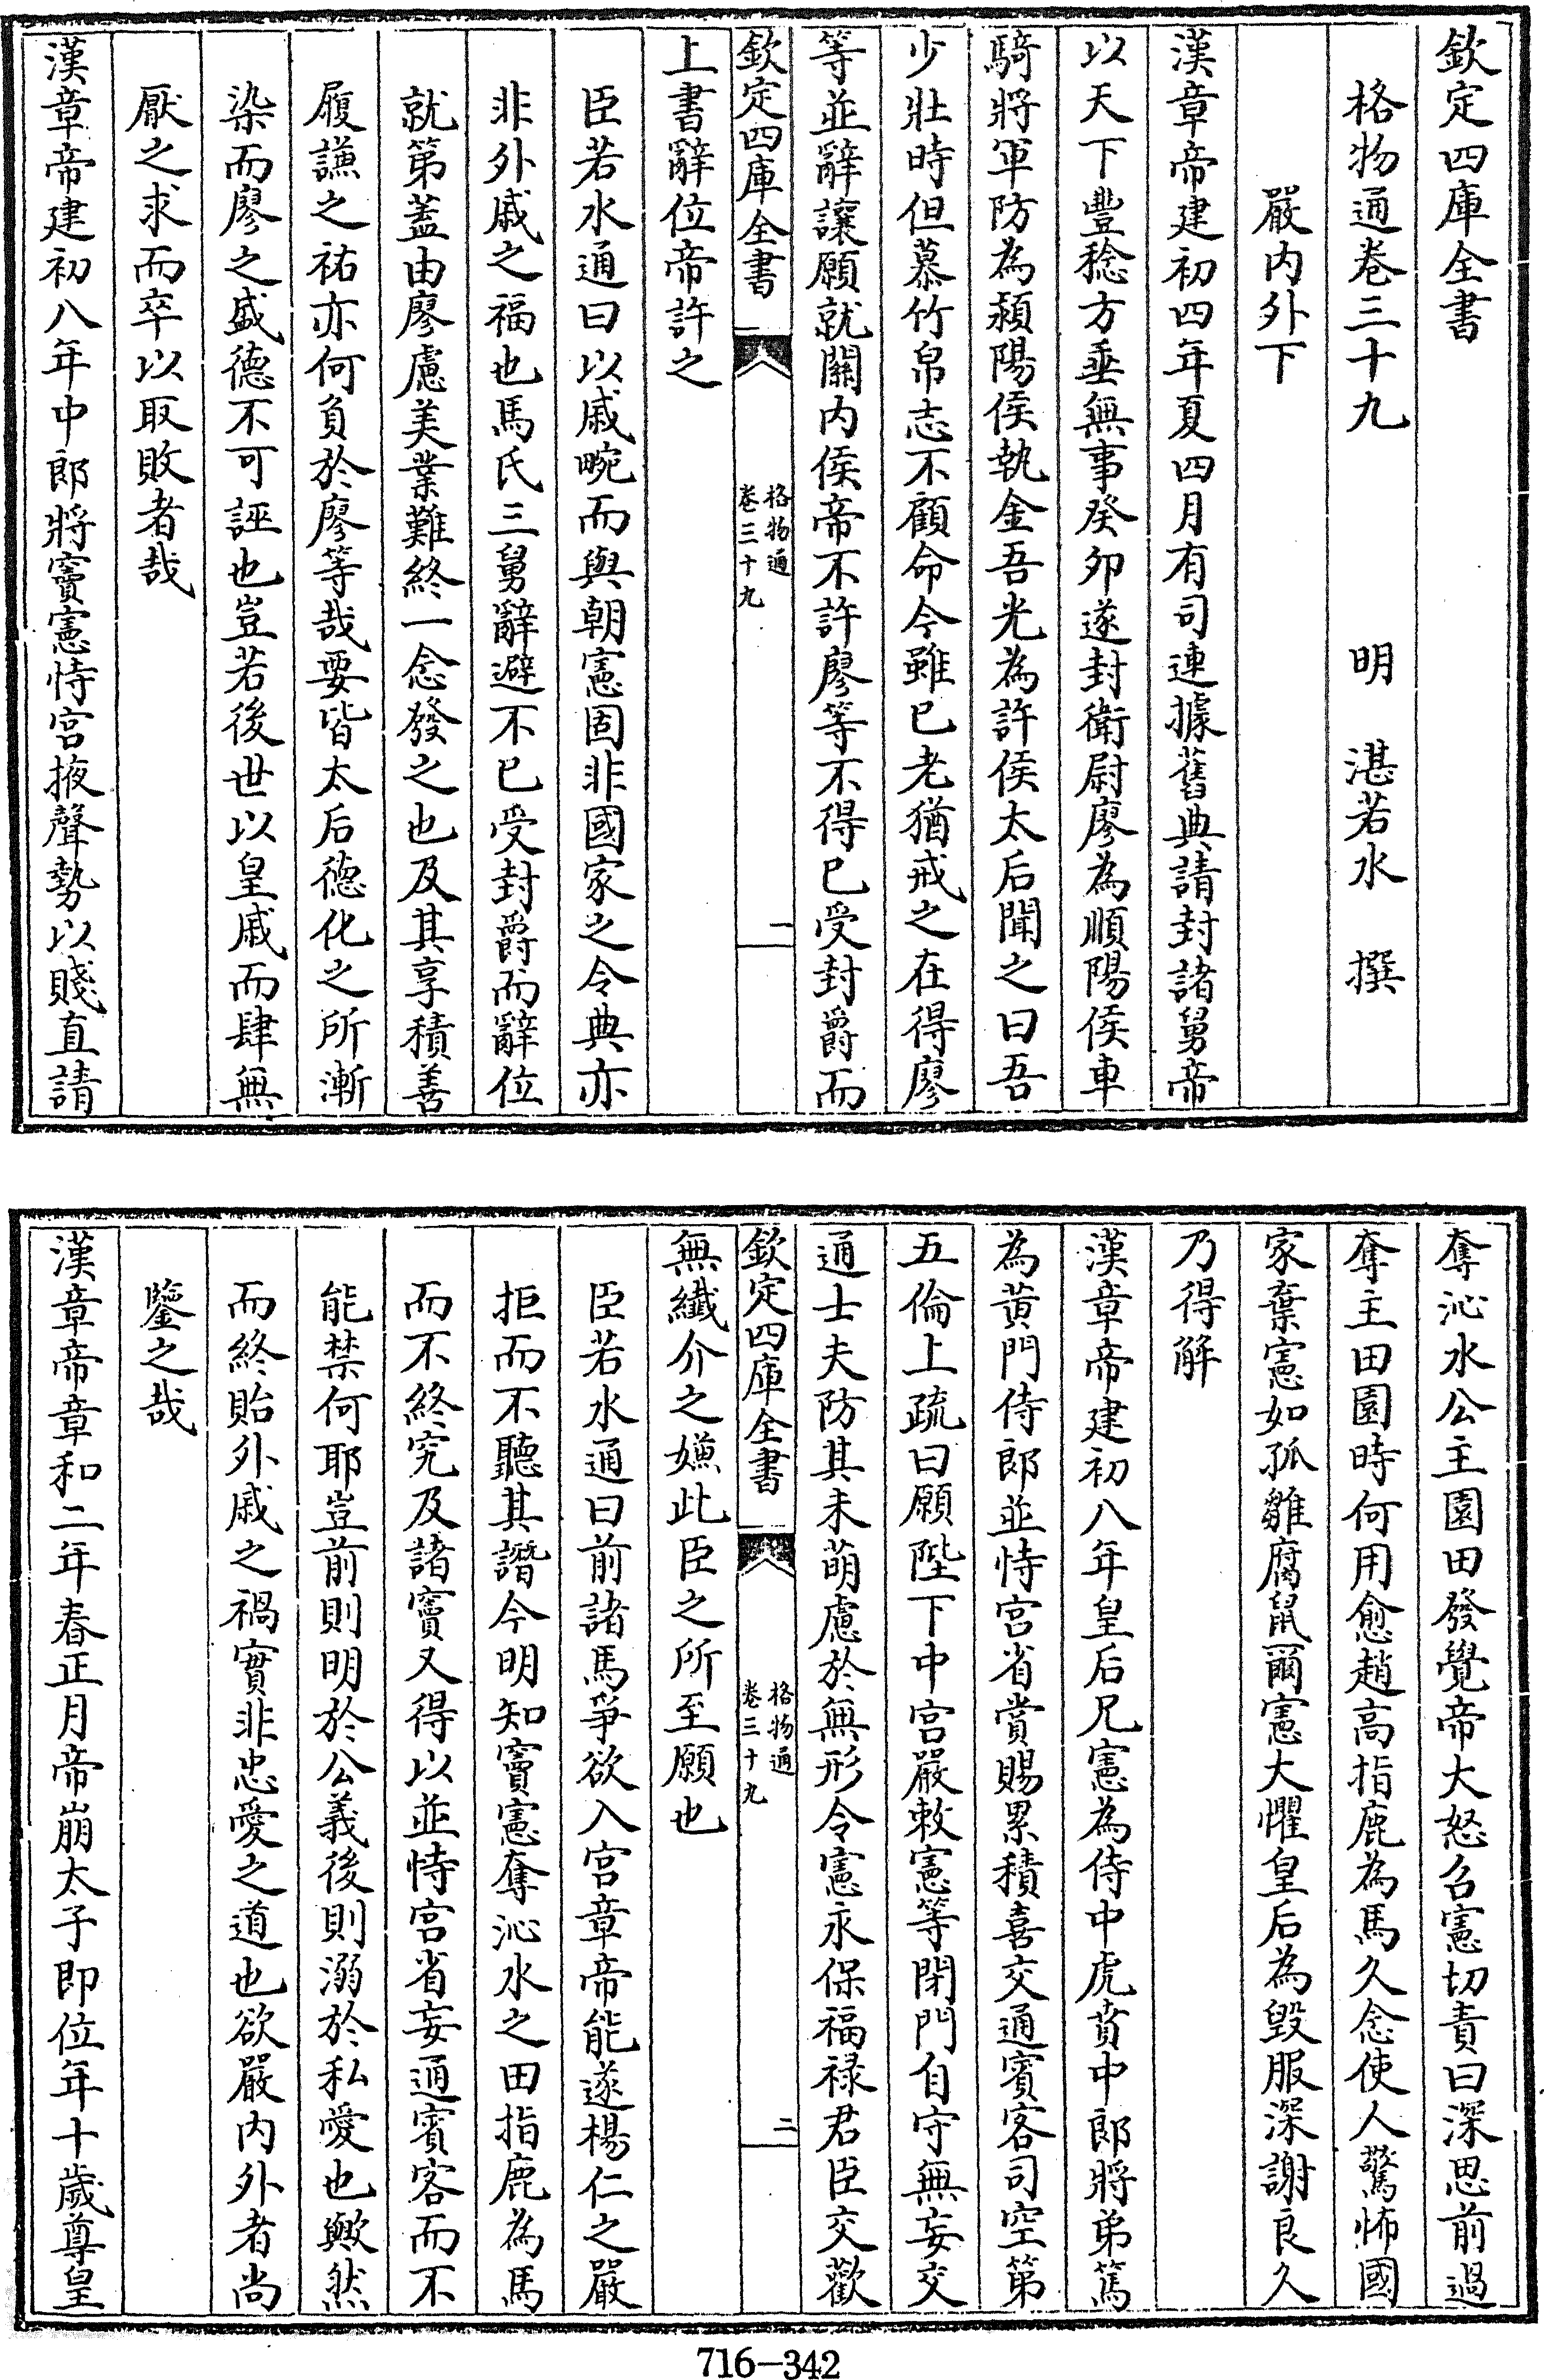 欽定四庫全書
格物通卷三十九　明　湛若水　撰
嚴内外下
漢章帝建初四年夏四月有司連據舊典請封諸舅帝
以天下豐稔方垂無事癸卯遂封衛尉廖為順陽侯車
騎將軍防為潁陽侯執金吾光為許侯太后聞之曰吾
少壯時但慕竹帛志不顧命今雖已老猶戒之在得廖
等並辭讓願就關内侯帝不許廖等不得已受封爵而
欽定四庫全書
格物通
卷三十九
一
上書辭位帝許之
臣若水通曰以戚畹而與朝憲固非國家之令典亦
非外戚之福也馬氏三舅辭避不已受封爵而辭位
就第蓋由廖慮美業難終一念發之也及其享積善
履謙之祐亦何負於廖等哉要皆太后德化之所漸
染而廖之盛德不可誣也豈若後世以皇戚而肆無
厭之求而卒以取敗者哉
漢章帝建初八年中郎將竇憲恃宮掖聲勢以賤直請
奪沁水公主園田發覺帝大怒召憲切責曰深思前過
奪主田園時何用愈趙高指鹿為馬久念使人驚怖國
家棄憲如孤雛腐鼠爾憲大懼皇后為毀服深謝良久
乃得解
漢章帝建初八年皇后兄憲為侍中虎賁中郎將弟篤
為黄門侍郎並恃宮省賞賜累積喜交通賓客司空第
五倫上疏曰願陛下中宮嚴敕憲等閉門自守無妄交
通士夫防其未萌慮於無形令憲永保福禄君臣交歡
欽定四庫全書
格物通
卷三十九
二
無纎介之嫌此臣之所至願也
臣若水通曰前諸馬爭欲入宮章帝能遂楊仁之嚴
拒而不聽其譖今明知竇憲奪沁水之田指鹿為馬
而不終究及諸竇又得以並恃宮省妄通賓客而不
能禁何耶豈前則明於公義後則溺於私愛也歟然
而終貽外戚之禍實非忠愛之道也欲嚴内外者尚
鑒之哉
漢章帝章和二年春正月帝崩太子即位年十歲尊皇
716-342